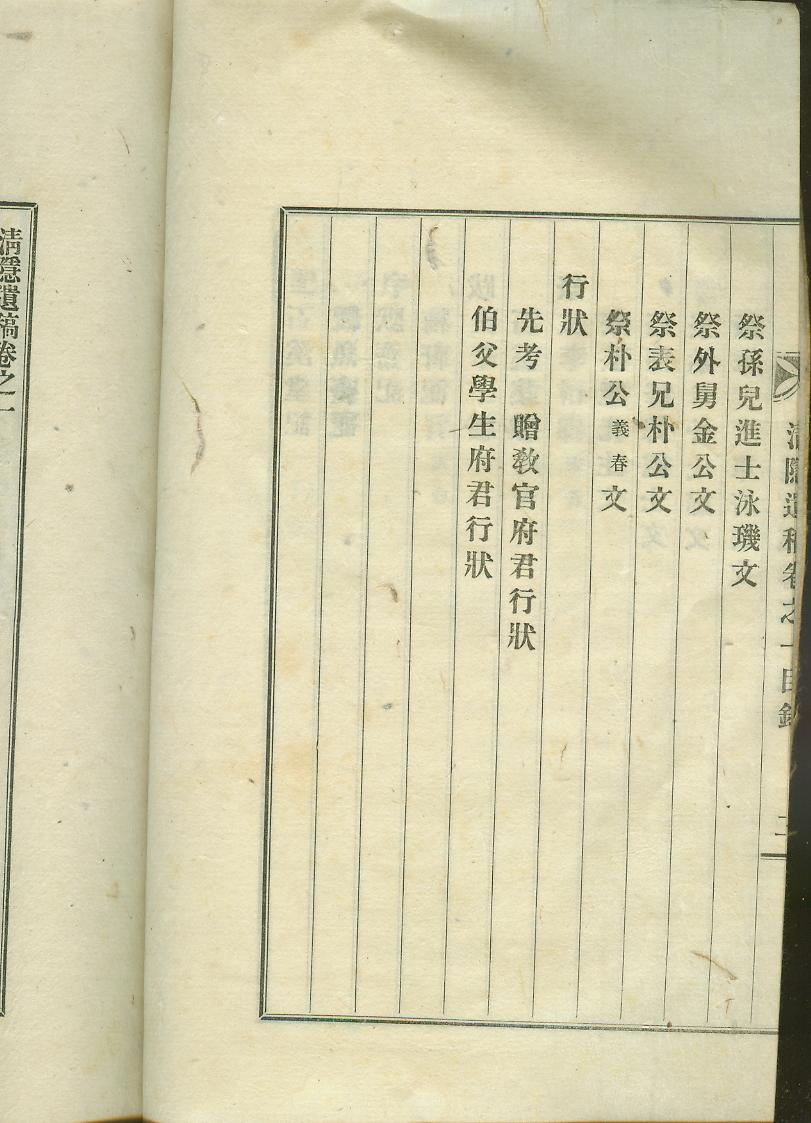 淸隱遺稿卷之一目錄
祭孫兒進士泳璣文
祭外舅金公文
祭表兄朴公文
祭朴公義春文
行狀
先考 贈敎官府君行狀
伯父學生府君行狀
淸隱遺稿卷之一